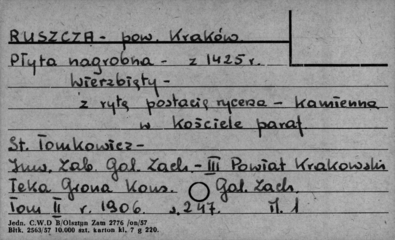 RUSZCZA - pow. Kraków
Płyta nagrobna - z 1425 r.
Wierzbięty -
z rytą postacią rycerza - kamienna
w kościele paraf.
St. Tomkowicz -
Inw. Zab. Gal. Zach. - III Powiat Krakowski
Teka Grona Kons. Gal. Zach.
Tom II r. 1906 s. 247. il. 1
Jedn. C.W.D B/Olsztyn Zam 2776 /on/57
Błtk. 2563/57 10.000 szt. karton kl. 7 g 220.